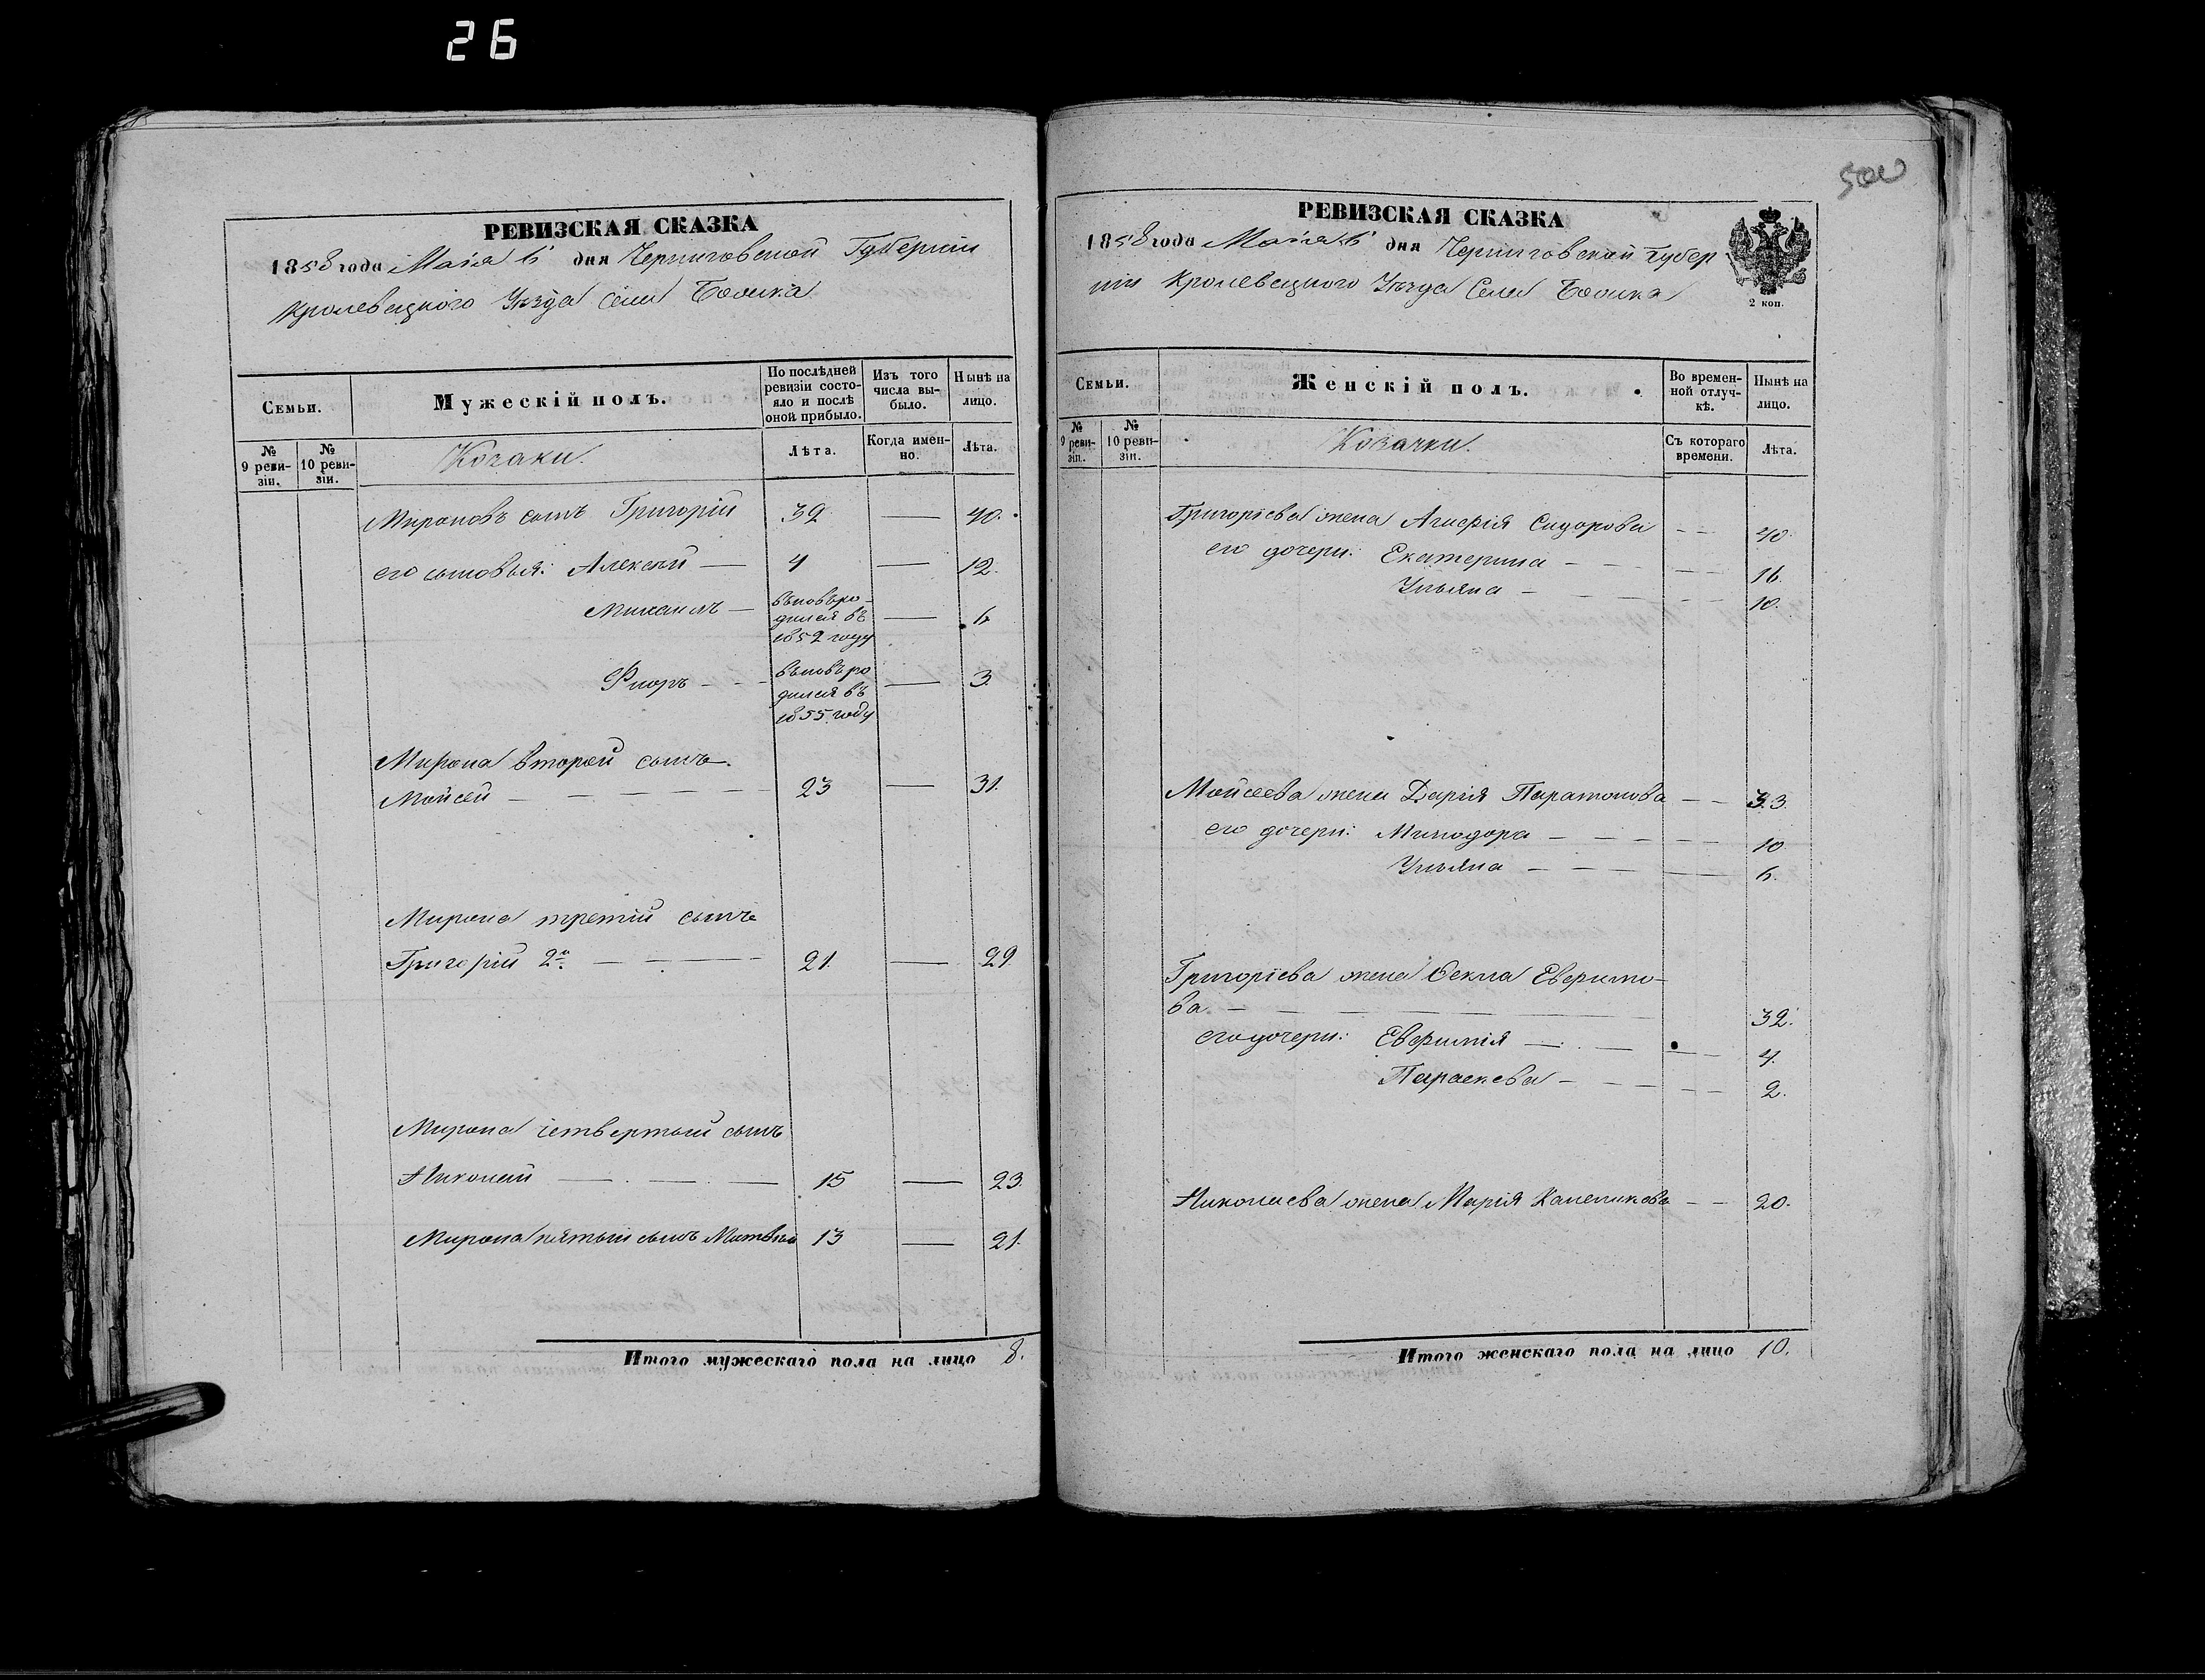 26
РЕВИЗСКАЯ СКАЗКА
1858 года Маія 6 дня Черниговской Губерніи
Кролевецкого Уѣзда Села
Семьи.
Мужескій полъ.
По послѣдней ревизіи состояло и послѣ оной прибыло.
Изъ того числа выбыло.
Нынѣ на лицо.
№ 9 ревизіи.
№ 10 ревизіи.
Козаки.
Лѣта.
Когда именно.
Лѣта.
Мироновъ сынъ Григорій 32 — 40.
его сыновья: Алексѣй — 4 — 12.
Михаилъ — вновь родился въ 1852 году — 6
Флоръ — вновь родился въ 1855 году — 3
Мирона второй сынъ
Мойсей — 23 — 31.
Мирона третій сынъ
Григорій 2й — 21. — 29
Мирона четвертый сынъ
Николай — 15 — 23.
Мирона пятый сынъ Матвѣй 13 — 21.
Итого мужескаго пола на лицо 8.
РЕВИЗСКАЯ СКАЗКА
1858 года Маія 6 дня Черниговской Губер
ніи Кролевецкого Уѣзда Села
2 коп.
Семьи.
Женскій полъ.
Во временной отлучкѣ.
Нынѣ на лицо.
№ 9 ревизіи.
№ 10 ревизіи.
Козачки.
Съ котораго времени.
Лѣта.
Григоріева жена Агафія Сидорова — — 40.
его дочери: Екатерина — — 16.
Ульяна — — 10.
Мойсеева жена Дарія Парамонова — — 33
его дочери: Минодора — — 10
Ульяна — — 6.
Григоріева жена Ѳекла Евфимо-
ва — — 32.
его дочери: Евфимія — — 4.
Параскева — — 2.
Николаева жена Марія — — 20.
Итого женскаго пола на лицо 10.